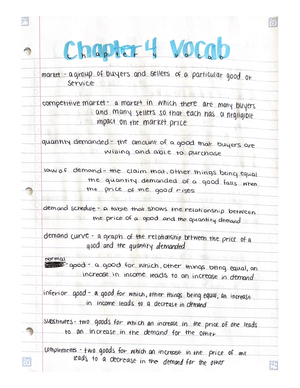 Chapter 4 Vocab
market - a group of buyers and sellers of a particular good or
service
competitive market - a market in which there are many buyers
and many sellers so that each has a negligible
impact on the market price
quantity demanded - the amount of a good that buyers are
willing and able to purchase
law of demand - the claim that, other things being equal
the quantity demanded of a good falls when
the price of the good rises
demand schedule - a table that shows the relationship between
the price of a good and the quantity demand
demand curve - a graph of the relationship between the price of a
good and the quantity demanded
normal
good - a good for which, other things being equal, an
increase in income leads to an increase in demand
inferior good - a good for which, other things being equal, an increase
in income leads to a decrease in demand
substitutes - two goods for which an increase in the price of one leads
to an increase in the demand for the other
complements - two goods for which an increase in the price of one
leads to a decrease in the demand for the other